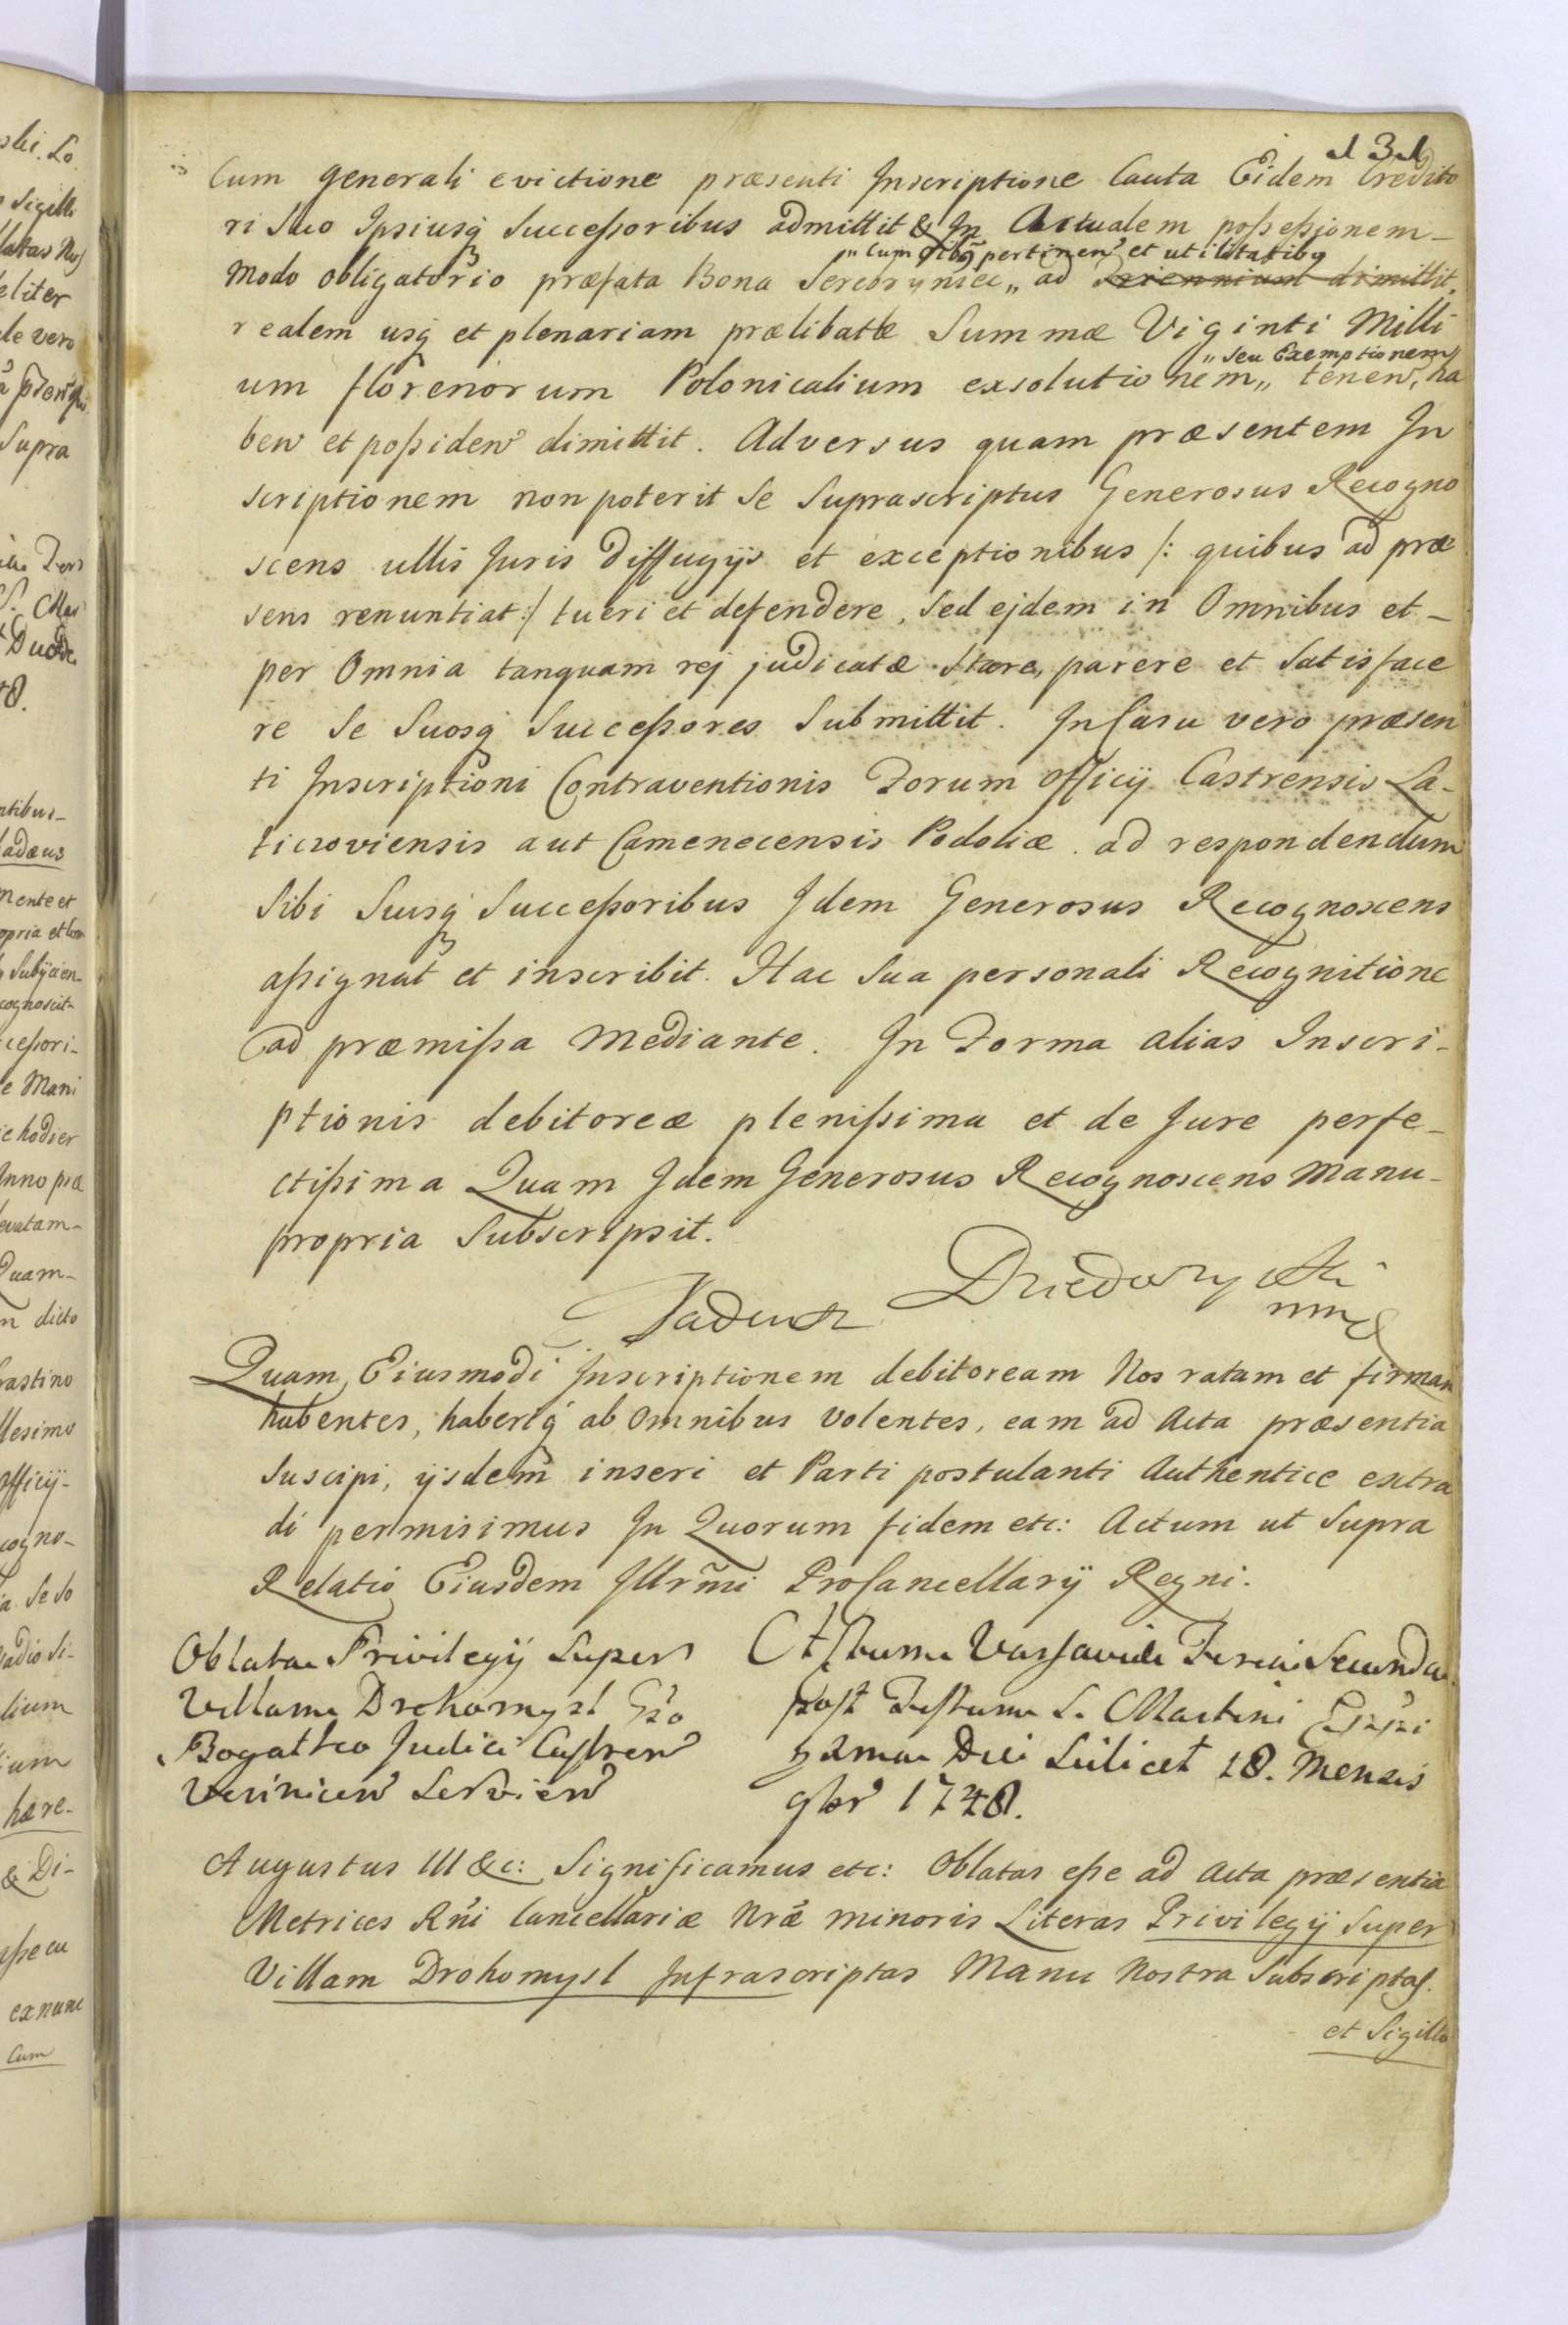 131
Cum generali evictione præsenti Inscriptione Cauta Eidem Credito
ri Suo Ipsiusq Succeßoribus admittit & In Actualem poßeßjonem-
„ Cum Oĩbq pertinen et utilitatibq
Modo obligatorio præfata Bona Serebryniec „ ad Triennium dimittit.
realem usq et plenariam prælibatæ Summæ Viginti Milli
„ seu Exemptionem
um florenorum Polonicalium exsolutionem „ tenen, ha
ben et poßiden dimittit. Adversus quam præsentem In
scriptionem non poterit Se Suprascriptus Generosus Recogno
scens ullis Juris Diffugijs et exceptionibus /: quibus ad præ
sens renuntiat :/ tueri et defendere, Sed ejdem in Omnibus et-
per Omnia tanquam rej judicatæ Stare, parere et Satisface
re Se Suosq Succeßores Submittit. In Casu vero præsen
ti Inscriptioni Contraventionis Forum Officij Castrensis La-
ticzoviensis aut Camenecensis Podoliæ ad respondendum
Sibi Suisq Succeßoribus Idem Generosus Recognoscens
aßignat et inscribit. Hac Sua personali Recognitione
ad præmißa Mediante. In Forma alias Inscri-
ptionis debitoreæ plenißima et de Jure perfe-
ctißima Quam Idem Generosus Recognoscens Manu-
propria Subscripsit.
Tadeusz Dzieduszycki
mmp
Quam Eiusmodi Inscriptionem debitoream Nos ratam et firmam
habentes, haberiq ab Omnibus volentes, eam ad Acta præsentia
Suscipi, ijsdem̃ inseri et Parti postulanti Authentice extra
di permisimus In Quorum fidem etc: Actum ut Supra
Relatio Eiusdem Illr̃mi ProCancellarij Regni.
Oblata Privilegij Super
Villam Drohomysl Gso
Bogatko Judici Castren
Vinnicen Servien
Actum Varsaviæ Feria Secunda
post Festum S. Martini Eppi
Die Scilicet 18. Mensis
9br 1748.
Augustus III &c: Significamus etc: Oblatas eße ad Acta præsentia
Metrices Rñi Cancellariæ Nræ minoris Literas Privilegij Super
Villam Drohomysl Infrascriptas Manu Nostra Subscriptas.
et Sigillo